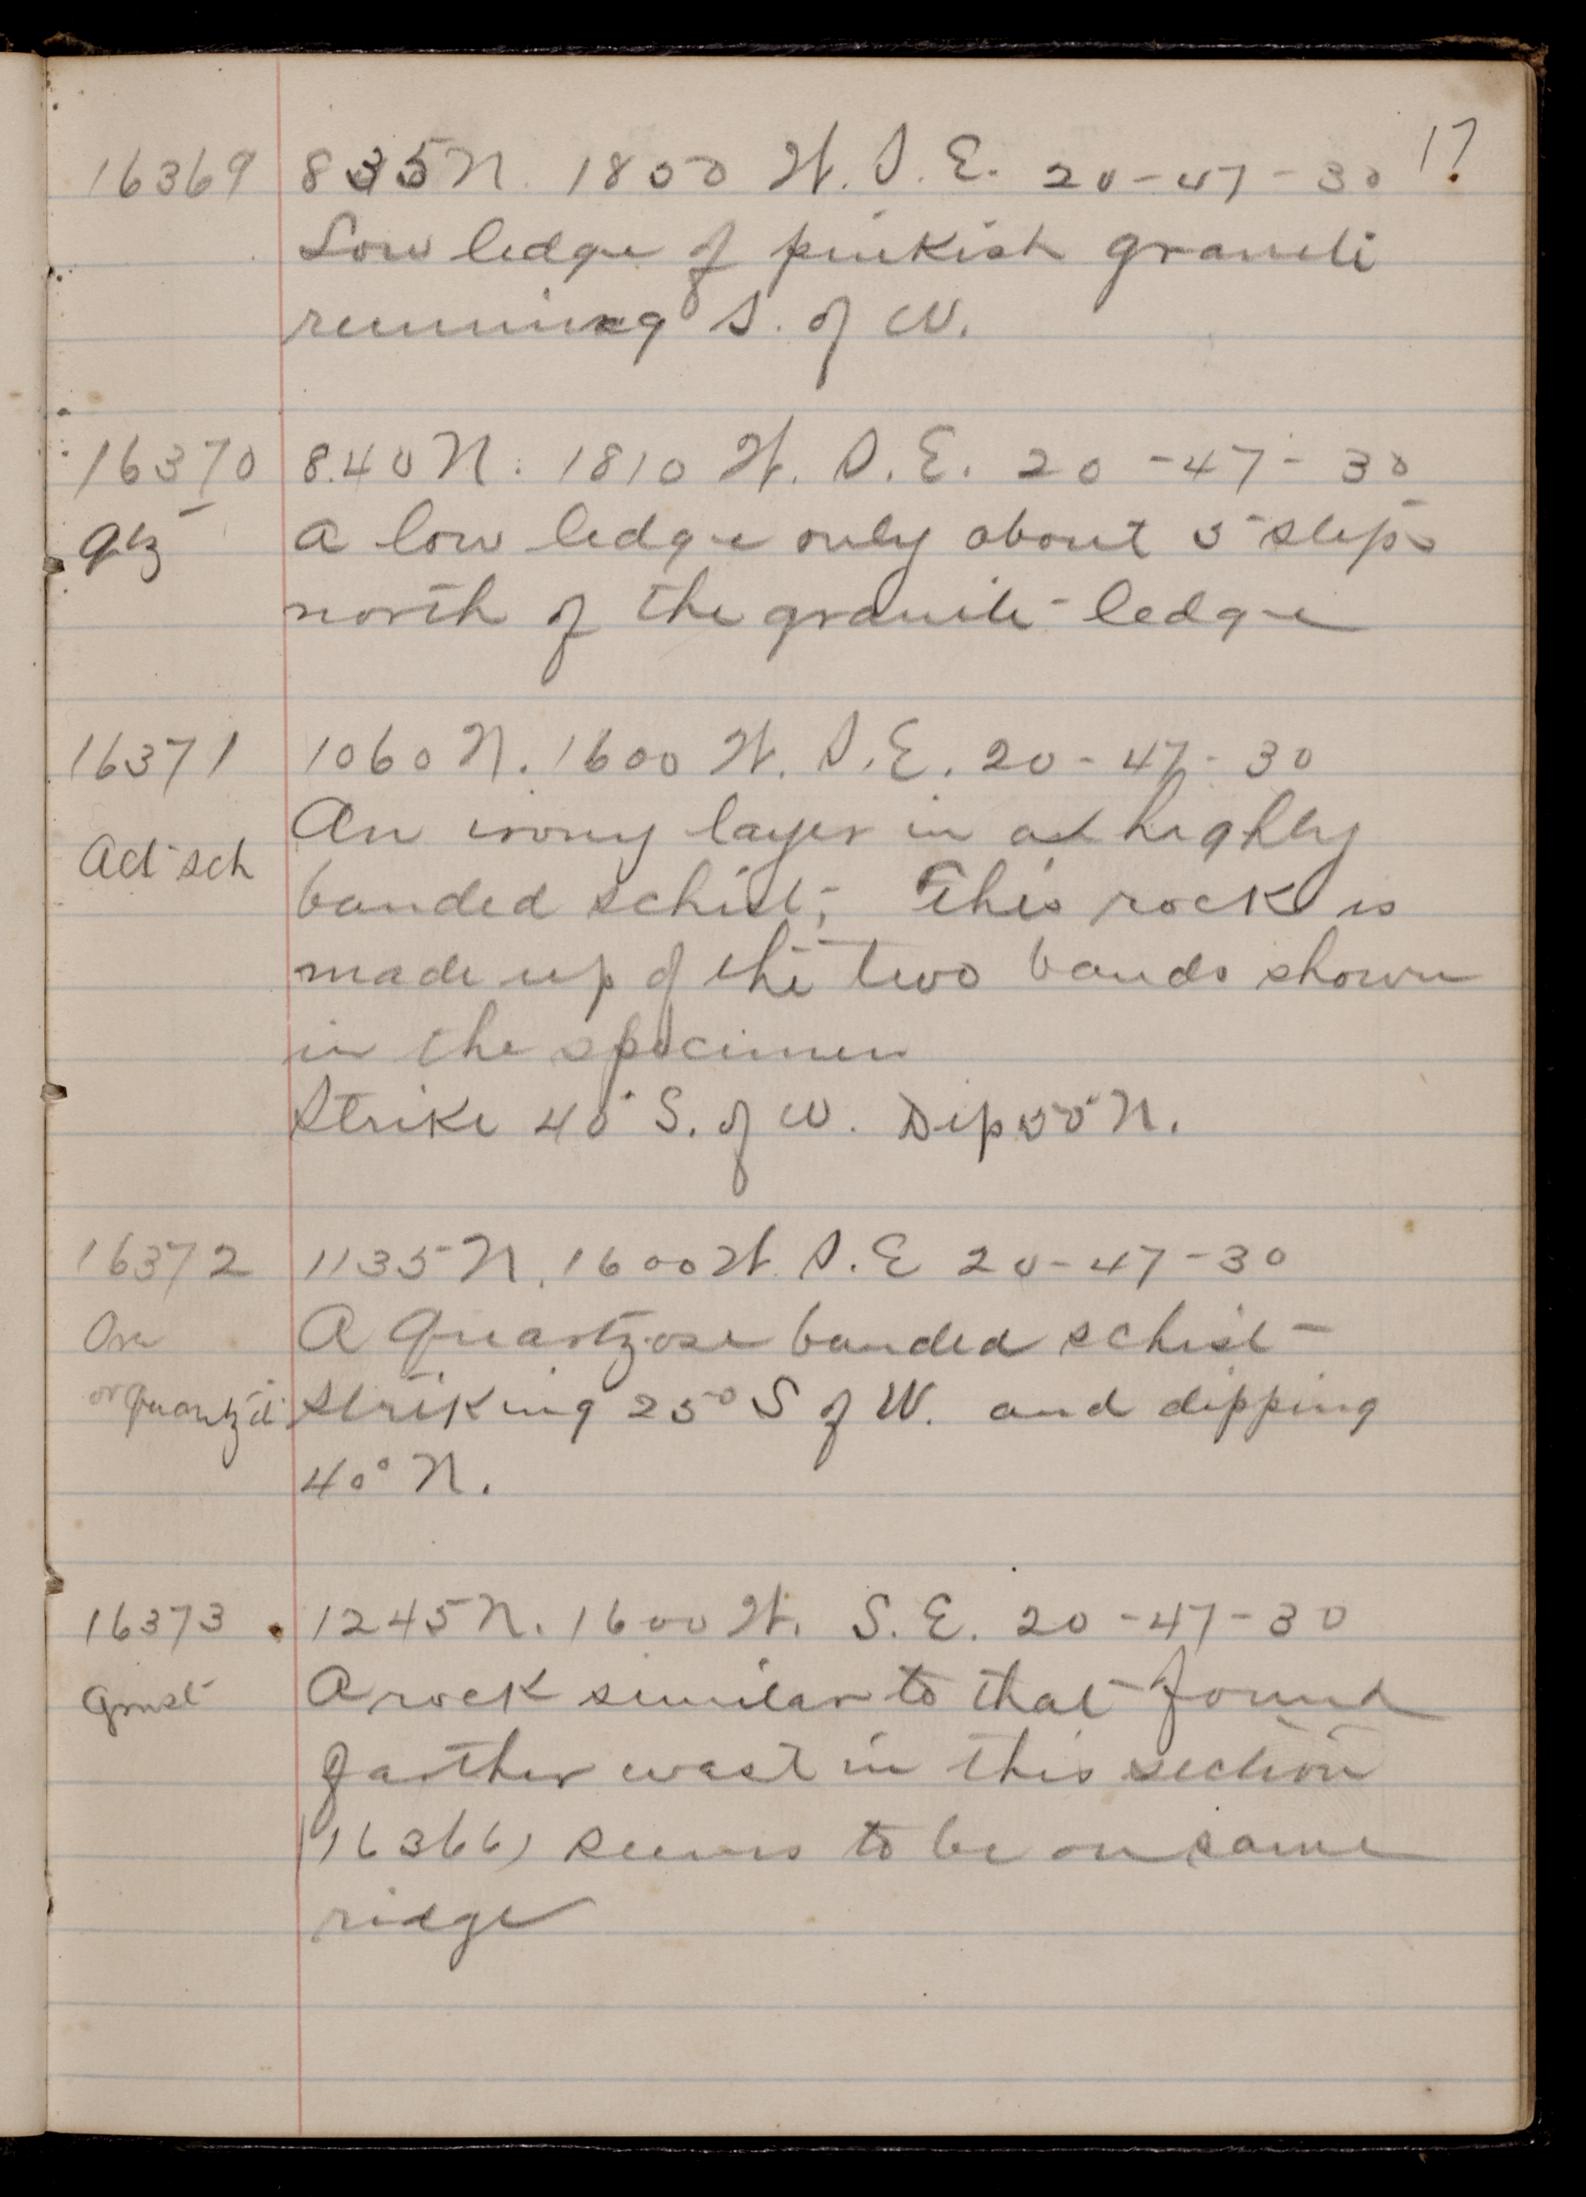 17
16369 835 N. 1850 W. S. E. 20-47-30
Low ledge of pinkish granite
running S. of W.
16370 840 N. 1810 W. S. E. 20-47-30
Qtz A low ledge only about 5 steps
north of the granite ledge
16371 1060 N. 1600 W. S. E. 20-47-30
An irony layer in a highly
Act sch banded schist; This rock is
made up of the two bands shown
in the specimen
Strike 40° S. of W. Dip 50° N.
16372 1135 N. 1600 W. S. E 20-47-30
Ore A Quartzose banded schist
or quartzit striking 25° S of W. and dipping
40° N.
16373 1245 N. 1600 W. S. E. 20-47-30
Grnst A rock similar to that found
farther west in this section
(16366) seems to be on same
ridge